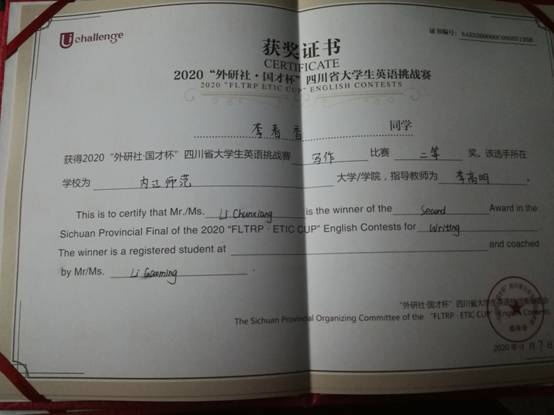 Uchallenge
证书编号:
获奖证书
CERTIFICATE
2020“外研社·国才杯”四川省大学生英语挑战赛
2020 "FLTRP·ETIC CUP" ENGLISH CONTESTS
李春香 同学
获得2020“外研社·国才杯”四川省大学生英语挑战赛 写作 比赛 二等 奖。该选手所在
学校为 内江师范 大学/学院,指导教师为 李高明 .
This is to certify that Mr./Ms. Li Chunxiang is the winner of the Second Award in the
Sichuan Provincial Final of the 2020 "FLTRP·ETIC CUP" English Contests for Writing
The winner is a registered student at and coached
by Mr/Ms. Li Gaoming .
“外研社·国才杯”四川省大学生英语挑战赛
The Sichuan Provincial Organizing Committee of the "FLTRP·ETIC CUP" English Contests
2020年 月7日